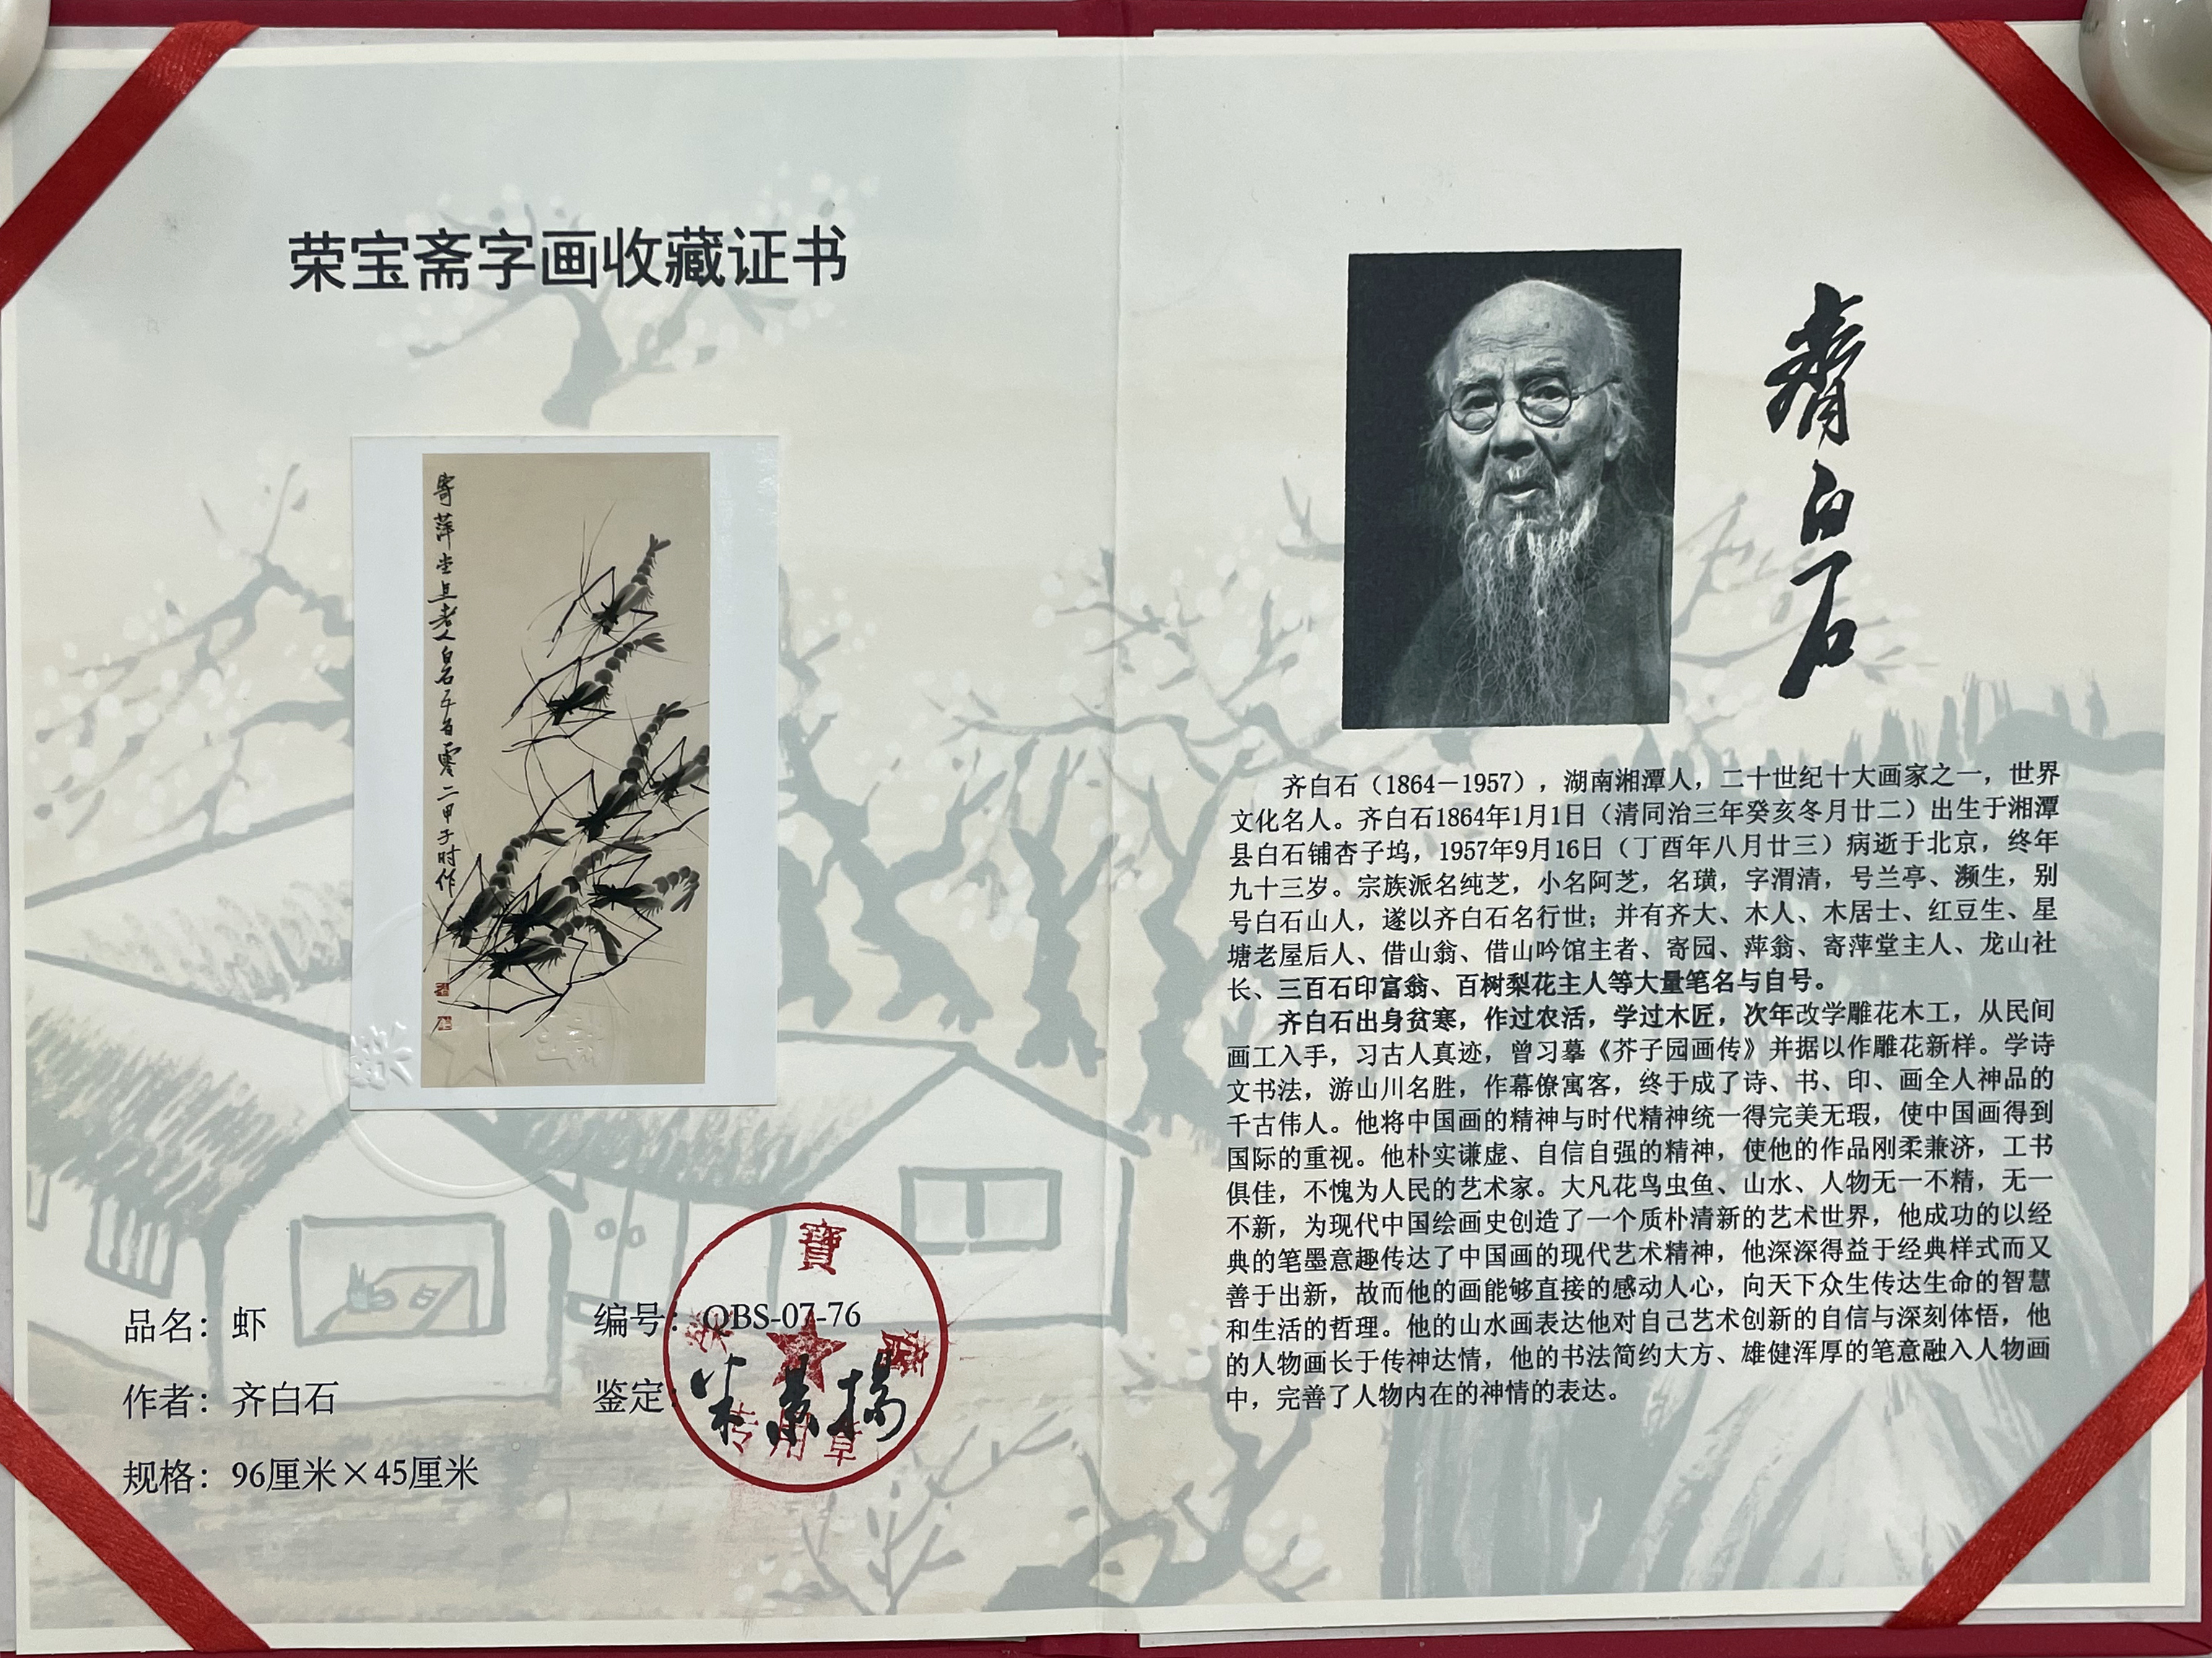 荣宝斋字画收藏证书
寄萍堂上老人白石五百零二甲子时作
品名：虾
作者：齐白石
规格：96厘米×45厘米
编号：QBS-07-76
鉴定：米景扬
寶
榮 齋
专用章
齐白石
齐白石（1864－1957），湖南湘潭人，二十世纪十大画家之一，世界
文化名人。齐白石1864年1月1日（清同治三年癸亥冬月廿二）出生于湘潭
县白石铺杏子坞，1957年9月16日（丁酉年八月廿三）病逝于北京，终年
九十三岁。宗族派名纯芝，小名阿芝，名璜，字渭清，号兰亭、濒生，别
号白石山人，遂以齐白石名行世；并有齐大、木人、木居士、红豆生、星
塘老屋后人、借山翁、借山吟馆主者、寄园、萍翁、寄萍堂主人、龙山社
长、三百石印富翁、百树梨花主人等大量笔名与自号。
齐白石出身贫寒，作过农活，学过木匠，次年改学雕花木工，从民间
画工入手，习古人真迹，曾习摹《芥子园画传》并据以作雕花新样。学诗
文书法，游山川名胜，作幕僚寓客，终于成了诗、书、印、画全人神品的
千古伟人。他将中国画的精神与时代精神统一得完美无瑕，使中国画得到
国际的重视。他朴实谦虚、自信自强的精神，使他的作品刚柔兼济，工书
俱佳，不愧为人民的艺术家。大凡花鸟虫鱼、山水、人物无一不精，无一
不新，为现代中国绘画史创造了一个质朴清新的艺术世界，他成功的以经
典的笔墨意趣传达了中国画的现代艺术精神，他深深得益于经典样式而又
善于出新，故而他的画能够直接的感动人心，向天下众生传达生命的智慧
和生活的哲理。他的山水画表达他对自己艺术创新的自信与深刻体悟，他
的人物画长于传神达情，他的书法简约大方、雄健浑厚的笔意融入人物画
中，完善了人物内在的神情的表达。